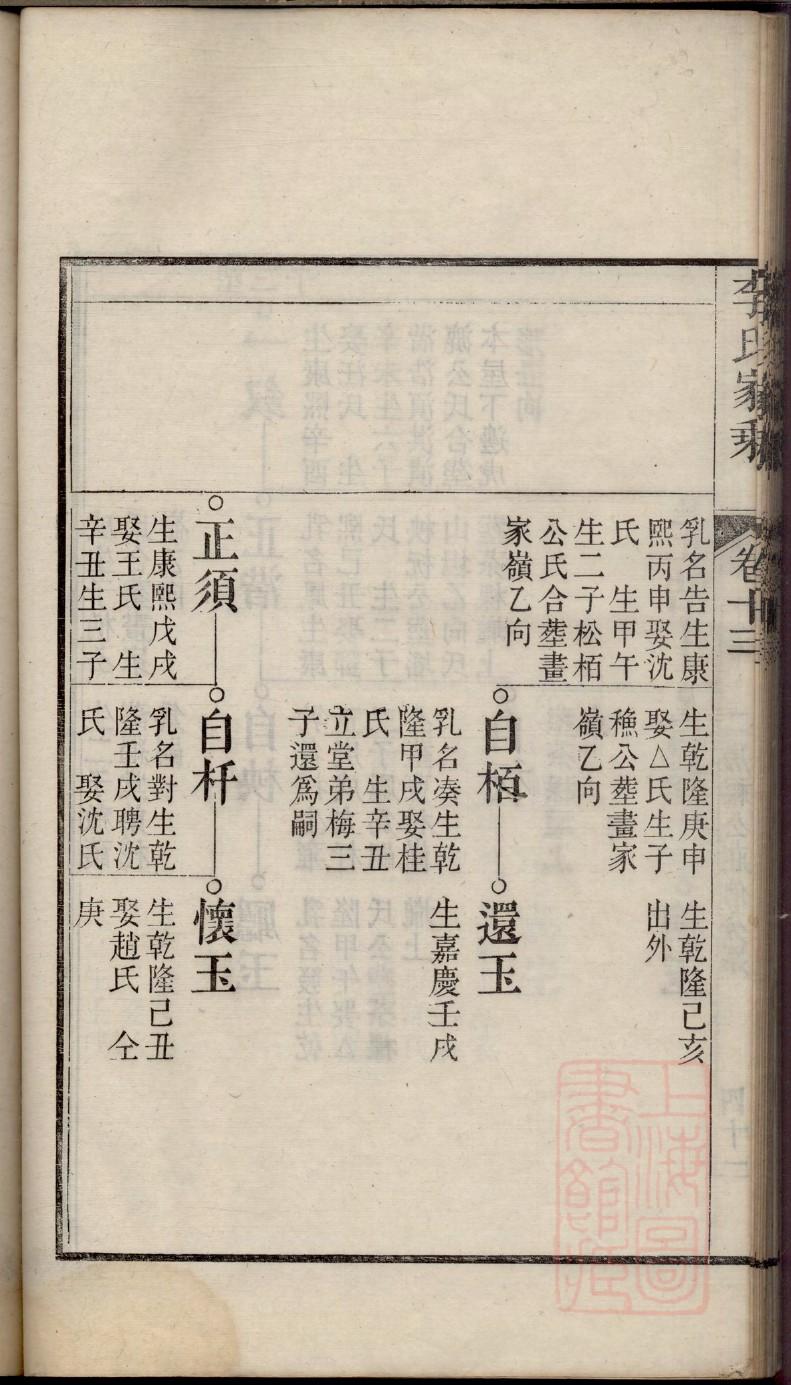 李氏家乘
卷十三
乳名告生康
熙丙申娶沈
氏　生甲午
生二子松栢
公氏合塟畫
家嶺乙向
生乾隆庚申
娶△氏生子
穐公塟畫家
嶺乙向
生乾隆己亥
出外
自栢
乳名凑生乾
隆甲戌娶桂
氏　生辛丑
立堂弟梅三
子還爲嗣
還玉
生嘉慶壬戌
正須
生康熙戊戌
娶王氏　生
辛丑生三子
自杆
乳名對生乾
隆壬戌聘沈
氏　娶沈氏
懷玉
生乾隆己丑
娶趙氏　仝
庚
上海圖
書館藏